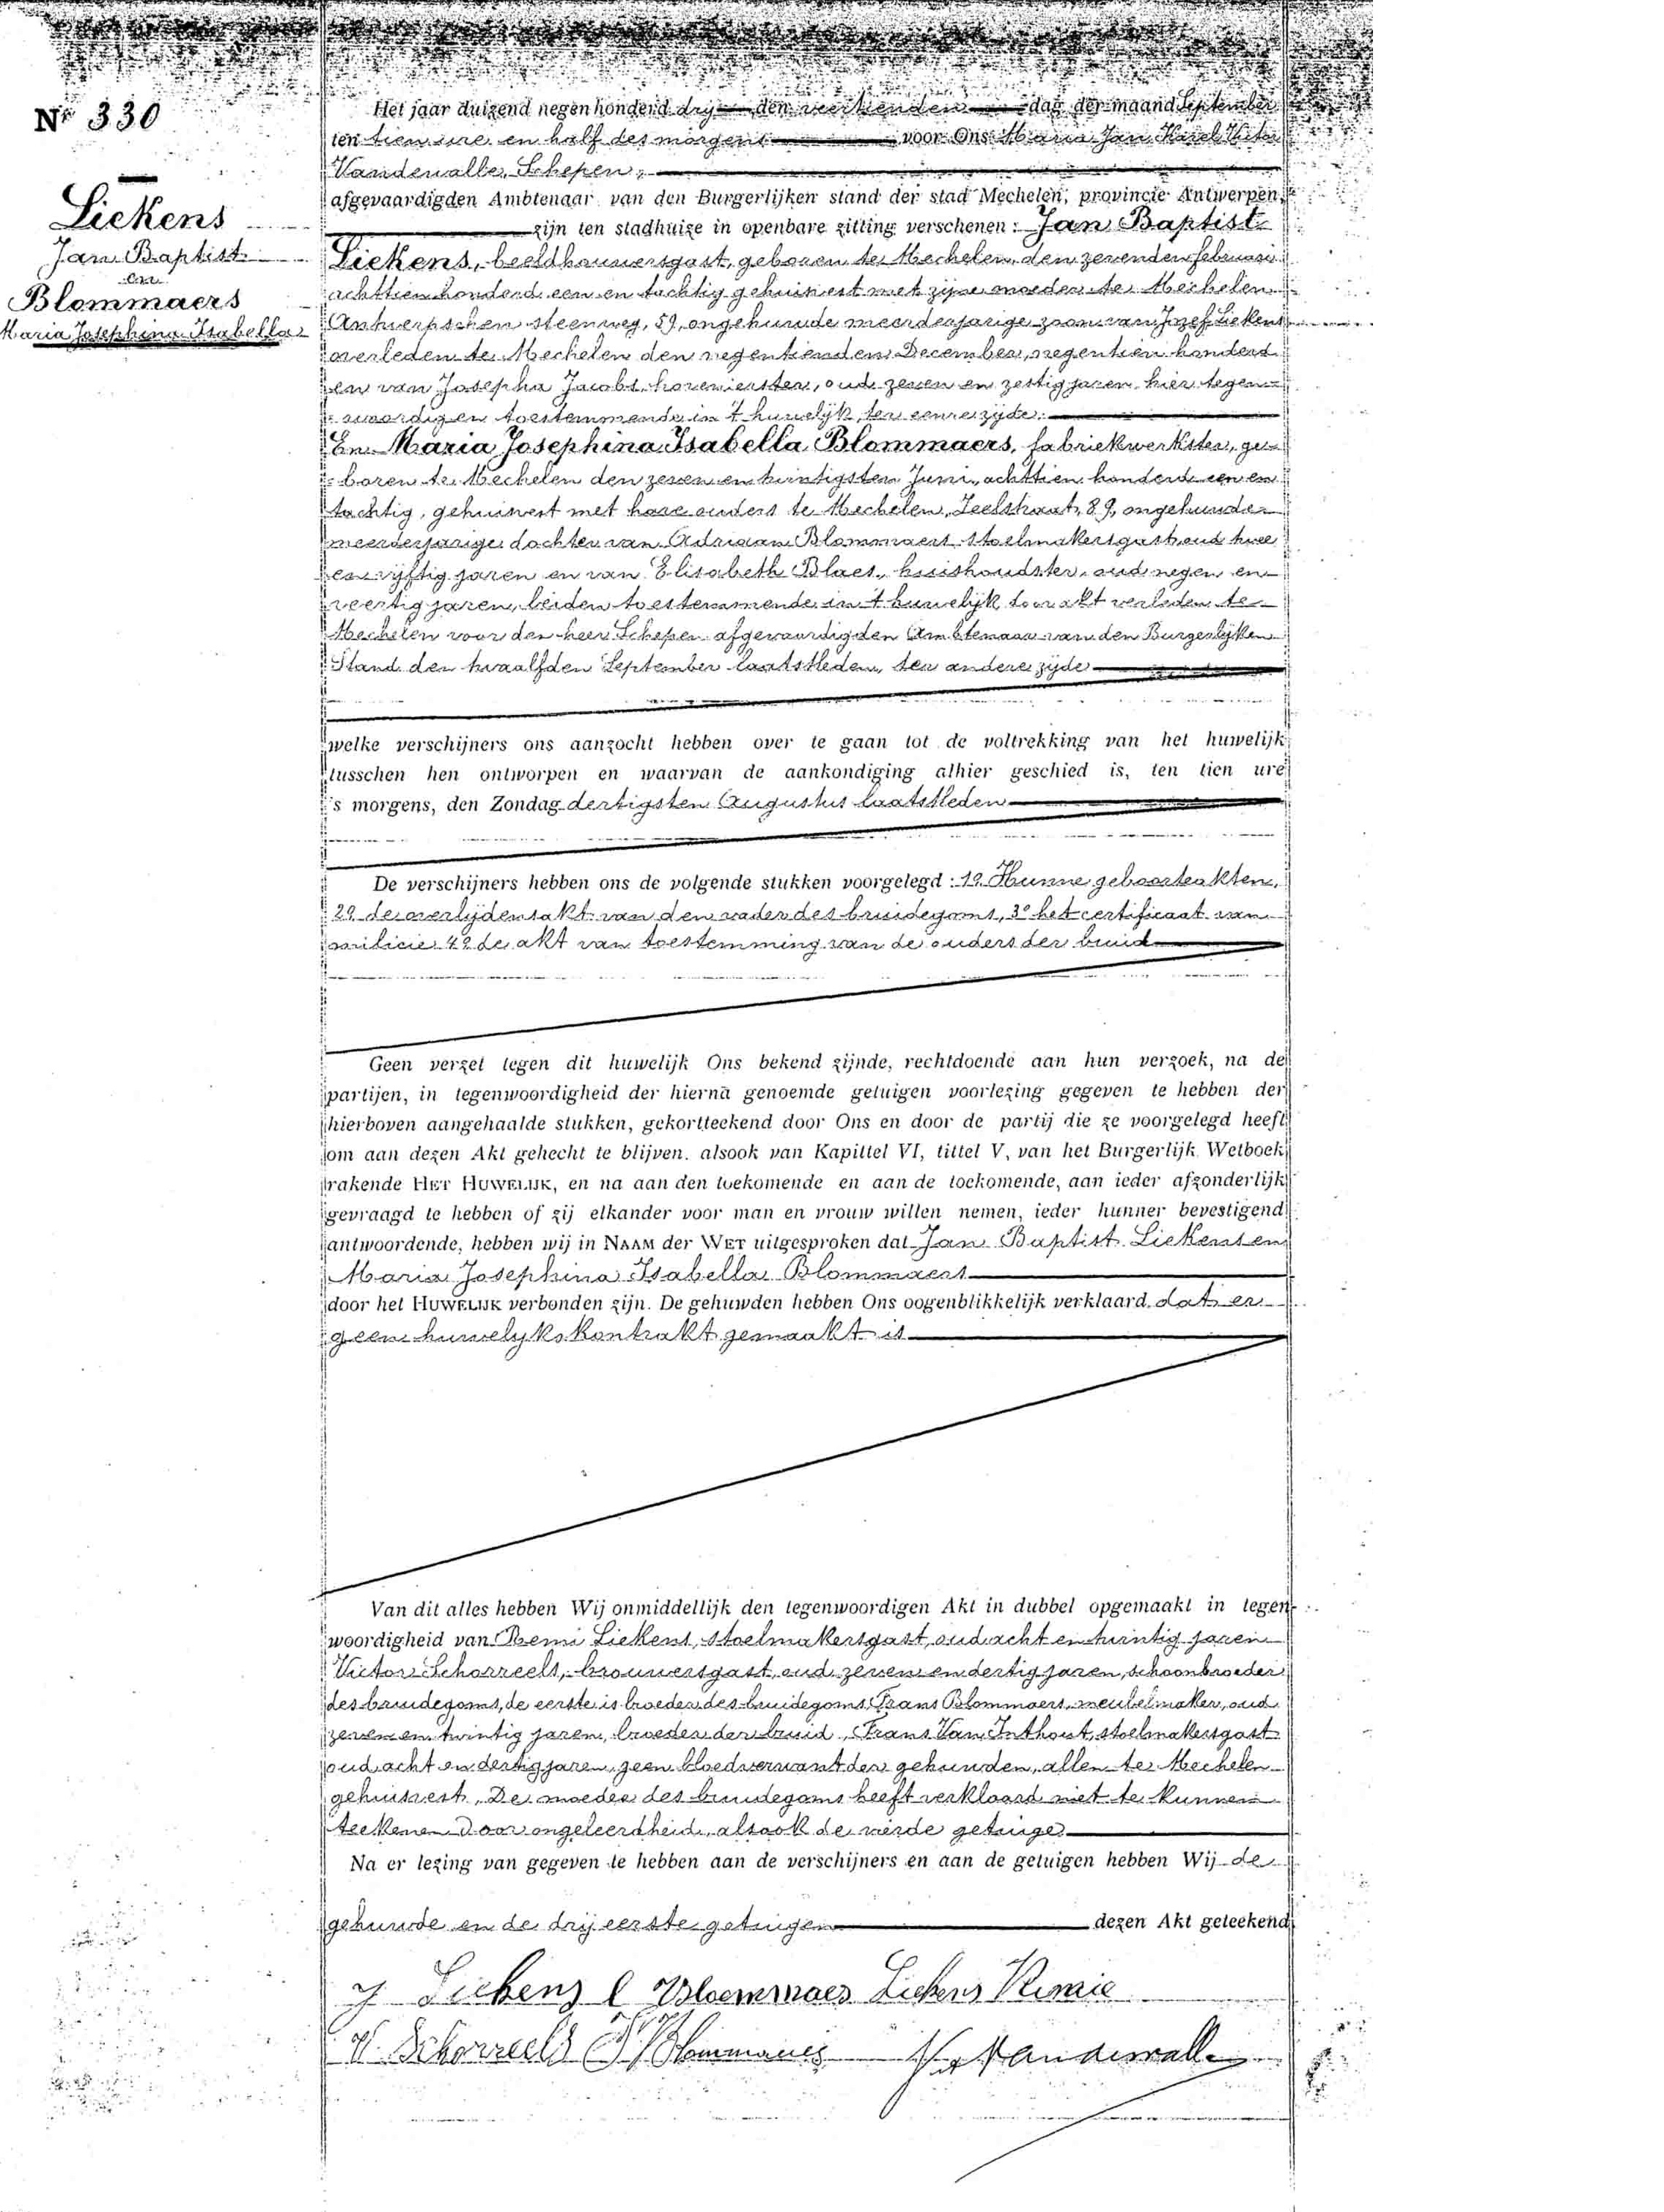 Nr 330
Liekens
Jan Baptist
en
Blommaers
Maria Josephina Isabella
Het jaar duizend negen honderd dry den veertienden dag der maand September
ten tien ure en half des morgens voor Ons Maria Jan Karel Victor
Vandewalle, Schepen,
afgevaardigden Ambtenaar van den Burgerlijken stand der stad Mechelen, provincie Antwerpen,
zijn ten stadhuize in openbare zitting verschenen : Jan Baptist
Liekens, beeldhouwersgast, geboren te Mechelen, den zevenden februari
achttien honderd een en tachtig gehuisvest met zijne moeder te Mechelen
Antwerpschen steenweg, 59, ongehuwde meerderjarige zoon van Jozef Liekens
overleden te Mechelen den negentienden December, negentien honderd
en van Josepha Jacobs, hovenierster, oud zeven en zestig jaren, hier tegen-
=woordig en toestemmende in 't huwelijk, ter eenre zijde.
En Maria Josephina Isabella Blommaers, fabriekwerkster, ge-
=boren te Mechelen den zeven en twintigsten Juni, achttien honderd een en
tachtig, gehuisvest met hare ouders te Mechelen, 89, ongehuwde
meerderjarige dochter van Adriaan Blommaers stoelmakersgast, oud twee
en vijftig jaren en van Elisabeth Blaes, huishoudster, oud negen en
veertig jaren, beiden toestemmende in 't huwelijk door akt verleden te
Mechelen voor den heer Schepen afgevaardigden Ambtenaar van den Burgerlijken
Stand den twaalfden September laatstleden, ter andere zijde
welke verschijners ons aanzocht hebben over te gaan tot de voltrekking van het huwelijk
tusschen hen ontworpen en waarvan de aankondiging alhier geschied is, ten tien ure
's morgens, den Zondag dertigsten Augustus laatstleden
De verschijners hebben ons de volgende stukken voorgelegd : 1º Hunne geboorteakten,
2º de overlijdensakt van den vader des bruidegoms, 3º het certificaat van
milicie 4º de akt van toestemming van de ouders der bruid
Geen verzet tegen dit huwelijk Ons bekend zijnde, rechtdoende aan hun verzoek, na de
partijen, in tegenwoordigheid der hierna genoemde getuigen voorlezing gegeven te hebben der
hierboven aangehaalde stukken, gekortteekend door Ons en door de partij die ze voorgelegd heeft
om aan dezen Akt gehecht te blijven. alsook van Kapittel VI, tittel V, van het Burgerlijk Wetboek
rakende HET HUWELIJK, en na aan den toekomende en aan de toekomende, aan ieder afzonderlijk
gevraagd te hebben of zij elkander voor man en vrouw willen nemen, ieder hunner bevestigend
antwoordende, hebben wij in NAAM der WET uitgesproken dat Jan Baptist Liekens en
Maria Josephina Isabella Blommaers
door het HUWELIJK verbonden zijn. De gehuwden hebben Ons oogenblikkelijk verklaard dat er
geen huwelykskontrakt gemaakt is
Van dit alles hebben Wij onmiddellijk den tegenwoordigen Akt in dubbel opgemaakt in tegen-
woordigheid van Remi Liekens, stoelmakersgast, oud acht en twintig jaren
Victor Schorreels, brouwersgast, oud zeven en dertig jaren, schoonbroeder
des bruidegoms, de eerste is broeder des bruidegoms Frans Blommaers, meubelmaker, oud
zeven en twintig jaren, broeder der bruid, Frans Van Inthout, stoelmakersgast
oud acht en dertig jaren, geen bloedverwant der gehuwden, allen te Mechelen
gehuisvest. De moeder des bruidegoms heeft verklaard niet te kunnen
teekenen door ongeleerdheid, alsook de vierde getuige
Na er lezing van gegeven te hebben aan de verschijners en aan de getuigen hebben Wij de
gehuwde en de drij eerste getuigen dezen Akt geteekend
J Liekens Bloemmaes Liekens Remie
V Schorreels F Blommaers V. Vandewalle